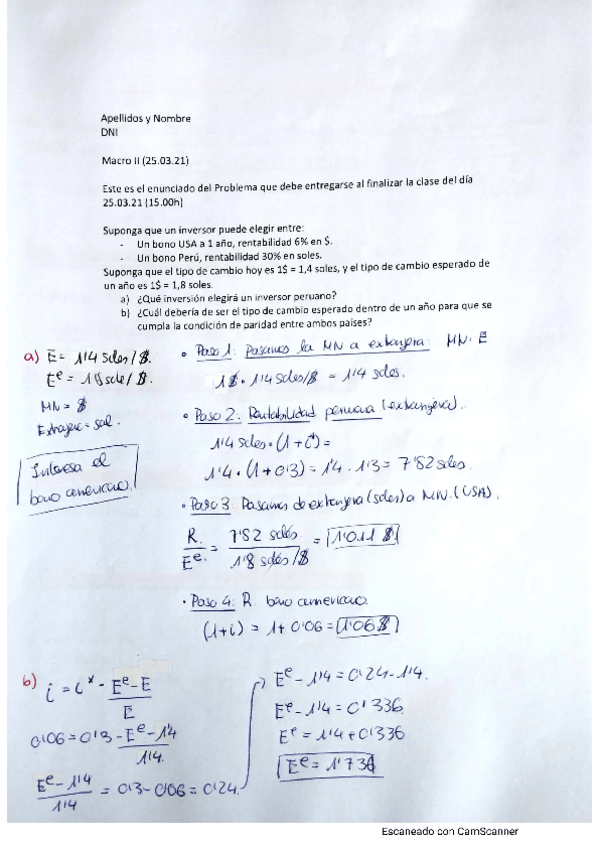 Apellidos y Nombre
DNI
Macro II (25.03.21)
Este es el enunciado del Problema que debe entregarse al finalizar la clase del día
25.03.21 (15.00h)
Suponga que un inversor puede elegir entre:
- Un bono USA a 1 año, rentabilidad 6% en $.
- Un bono Perú, rentabilidad 30% en soles.
Suponga que el tipo de cambio hoy es 1$ = 1,4 soles, y el tipo de cambio esperado de
un año es 1$ = 1,8 soles.
a) ¿Qué inversión elegirá un inversor peruano?
b) ¿Cuál debería de ser el tipo de cambio esperado dentro de un año para que se
cumpla la condición de paridad entre ambos países?
a) E = 1'4 Soles/$.
E^e = 1'8 sole/$.
MN = $
Extranjera = sol.
Interesa el
bono americano.
• Paso 1: Pasamos la MN a extranjera: MN · E
1$ · 1'4 Soles/$ = 1'4 soles.
• Paso 2: Rentabilidad peruana (extranjera).
1'4 Soles · (1+i*) =
1'4 · (1+0'3) = 1'4 · 1'3 = 1'82 soles.
• Paso 3 Pasamos de extranjera (soles) a MN. (USA).
R. / E^e. = 1'82 soles / 1'8 soles/$ = 1'011 $
• Paso 4: R. bono americano.
(1+i) = 1 + 0'06 = 1'06 $
b) i = i* - E^e - E / E
0'06 = 0'3 - E^e - 1'4 / 1'4.
E^e - 1'4 / 1'4 = 0'3 - 0'06 = 0'24.
E^e - 1'4 = 0'24 · 1'4.
E^e - 1'4 = 0'336
E^e = 1'4 + 0'336
E^e = 1'736
Escaneado con CamScanner